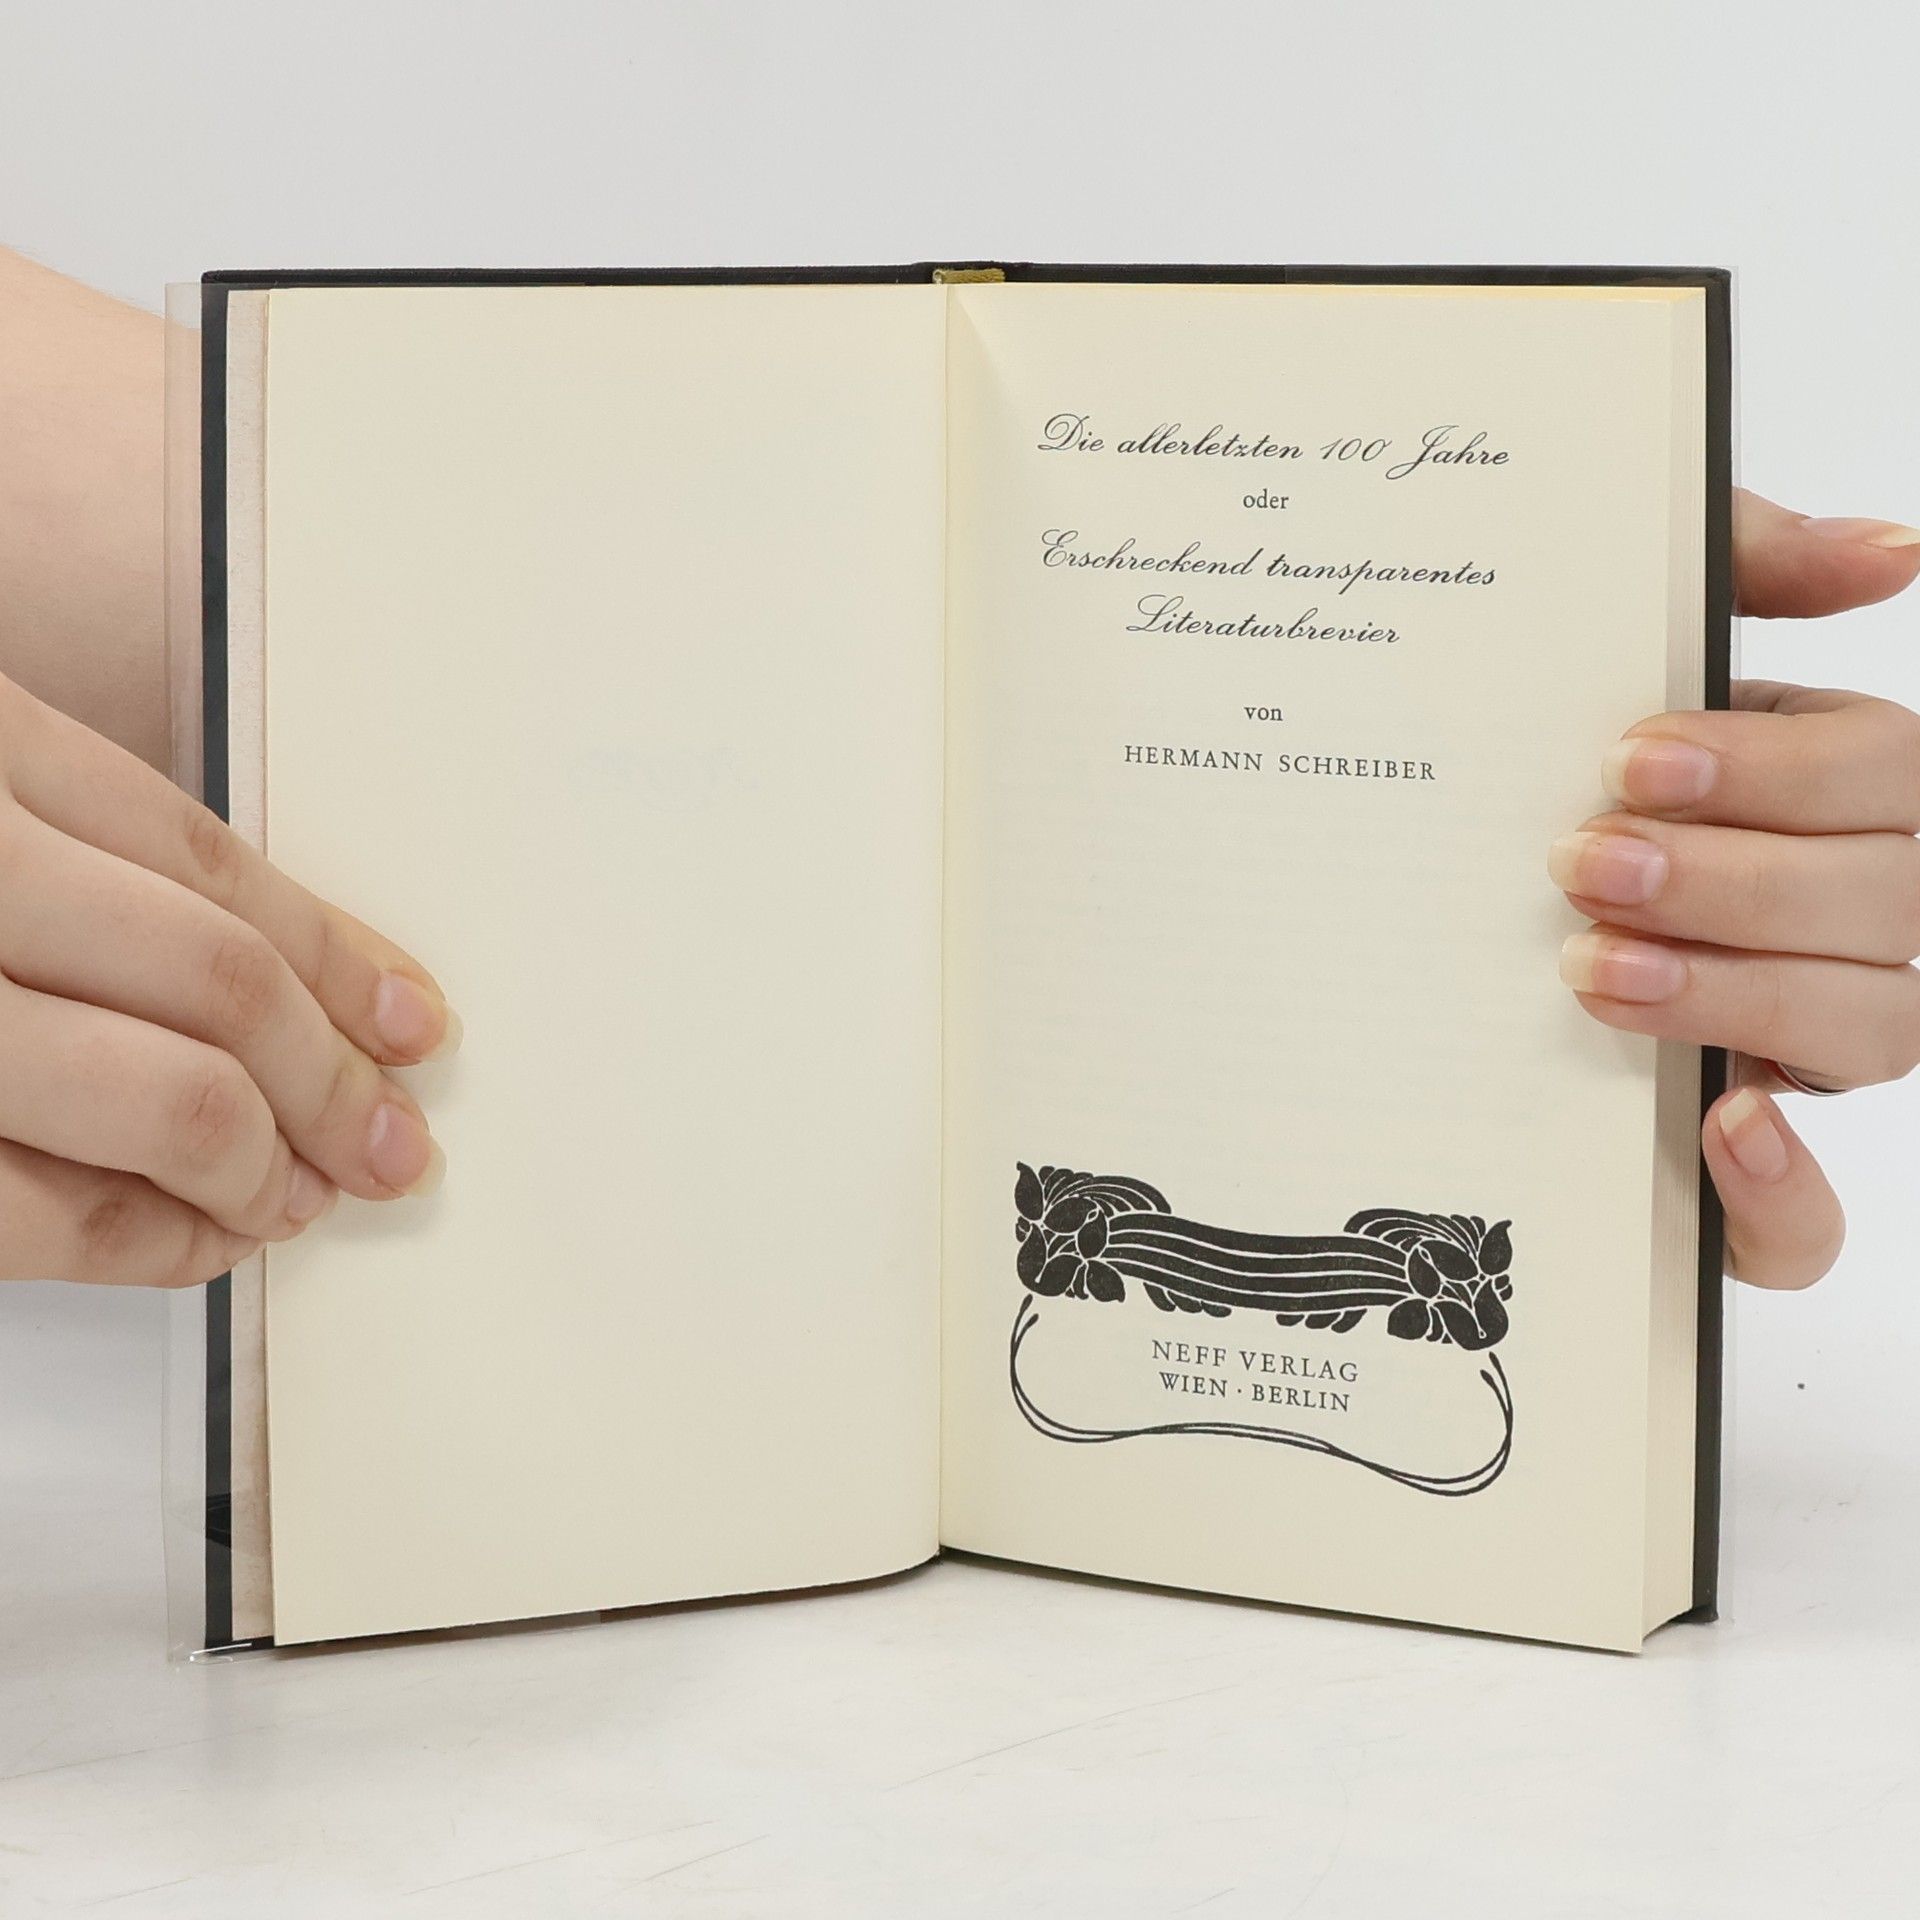 Die allerletzten 100 Jahre
oder
Erschreckend transparentes
Literaturbrevier
von
HERMANN SCHREIBER
NEFF VERLAG
WIEN · BERLIN